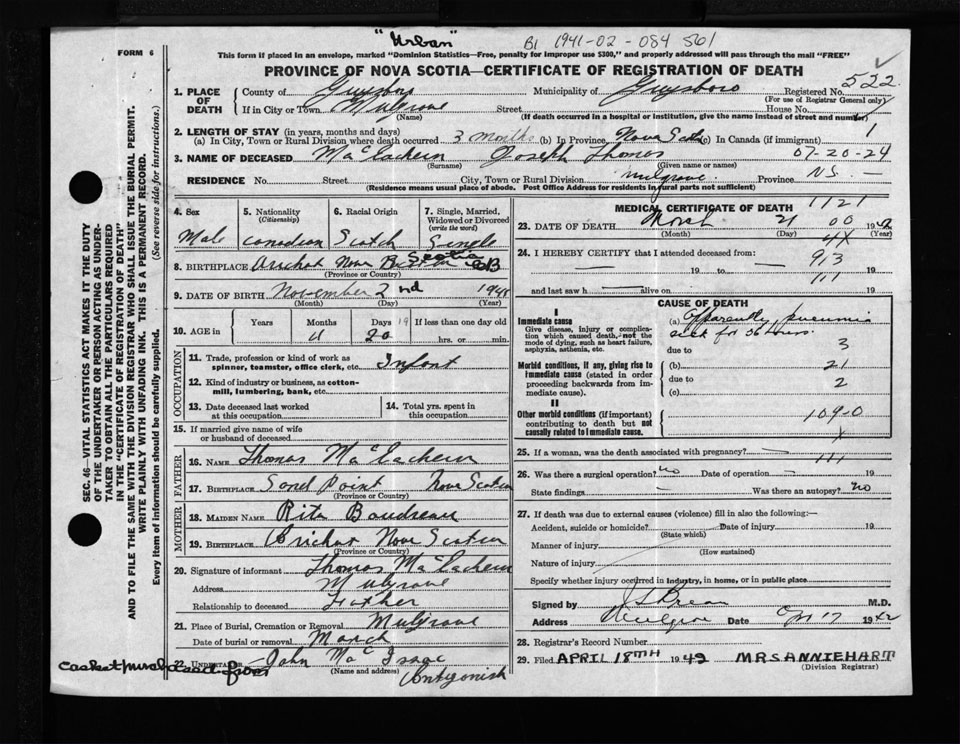 "Urban"
B1 1941-02-084 561
FORM 6
This form if placed in an envelope, marked "Dominion Statistics—Free, penalty for improper use $300," and properly addressed will pass through the mail "FREE"
PROVINCE OF NOVA SCOTIA—CERTIFICATE OF REGISTRATION OF DEATH
522
1. PLACE OF DEATH
County of Guysboro Municipality of Guysboro Registered No.
(For use of Registrar General only)
If in City or Town Mulgrave Street House No.
(Name) (If death occurred in a hospital or institution, give the name instead of street and number)
1
2. LENGTH OF STAY (in years, months and days)
(a) In City, Town or Rural Division where death occurred 3 months (b) In Province Nova Scotia (c) In Canada (if immigrant)
3. NAME OF DECEASED MacEachern Joseph Thomas 07-20-24
(Surname) (Given name or names)
RESIDENCE No. Street City, Town or Rural Division Mulgrave. Province N.S. —
(Residence means usual place of abode. Post Office Address for residents in rural parts not sufficient)
4. Sex
Male
5. Nationality
(Citizenship)
Canadian
6. Racial Origin
Scotch
7. Single, Married, Widowed or Divorced
(write the word)
Single
8. BIRTHPLACE Arichat Nova Scotia CB
(Province or Country)
9. DATE OF BIRTH November 2nd 1941
(Month) (Day) (Year)
10. AGE in
Years
Months
4
Days 19
20
If less than one day old
hrs. or min.
OCCUPATION
11. Trade, profession or kind of work as spinner, teamster, office clerk, etc. Infant
12. Kind of industry or business, as cotton-mill, lumbering, bank, etc.
13. Date deceased last worked at this occupation
14. Total yrs. spent in this occupation
15. If married give name of wife or husband of deceased
FATHER
16. Name Thomas MacEachern
17. Birthplace Sand Point Nova Scotia
(Province or Country)
MOTHER
18. Maiden Name Rita Boudreau
19. Birthplace Arichat Nova Scotia
(Province or Country)
20. Signature of informant Thomas MacEachern
Address Mulgrave
Relationship to deceased Father
21. Place of Burial, Cremation or Removal Mulgrave
Date of burial or removal March
casket purchased from
UNDERTAKER John MacIsaac
(Name and address)
Antigonish
MEDICAL CERTIFICATE OF DEATH 1121
23. DATE OF DEATH March 21 00 1942
(Month) (Day) (Year)
4X
24. I HEREBY CERTIFY that I attended deceased from: 913
— 19 to — 19
111
and last saw h alive on 19
CAUSE OF DEATH
I
Immediate cause
Give disease, injury or complication which caused death, not the mode of dying, such as heart failure, asphyxia, asthenia, etc.
(a) Apparently pneumonia
sick for 36 hours.
due to 3
Morbid conditions, if any, giving rise to immediate cause (stated in order proceeding backwards from immediate cause).
(b) 21
due to 2
(c)
II
Other morbid conditions (if important) contributing to death but not causally related to immediate cause.
109-0
25. If a woman, was the death associated with pregnancy? —
111
26. Was there a surgical operation? no Date of operation — 19
State findings — Was there an autopsy? no
27. If death was due to external causes (violence) fill in also the following:—
Accident, suicide or homicide? Date of injury 19
(State which)
Manner of injury
(How sustained)
Nature of injury
Specify whether injury occurred in industry, in home, or in public place
Signed by M.D.
Address Mulgrave Date 17 1942
28. Registrar's Record Number
29. Filed APRIL 18TH 1942 MRS ANNIE HART
(Division Registrar)
SEC. 46—VITAL STATISTICS ACT MAKES IT THE DUTY OF THE UNDERTAKER OR PERSON ACTING AS UNDERTAKER TO OBTAIN ALL THE PARTICULARS REQUIRED IN THE "CERTIFICATE OF REGISTRATION OF DEATH" AND TO FILE THE SAME WITH THE DIVISION REGISTRAR WHO SHALL ISSUE THE BURIAL PERMIT.
WRITE PLAINLY WITH UNFADING INK. THIS IS A PERMANENT RECORD.
Every item of information should be carefully supplied. (See reverse side for instructions.)